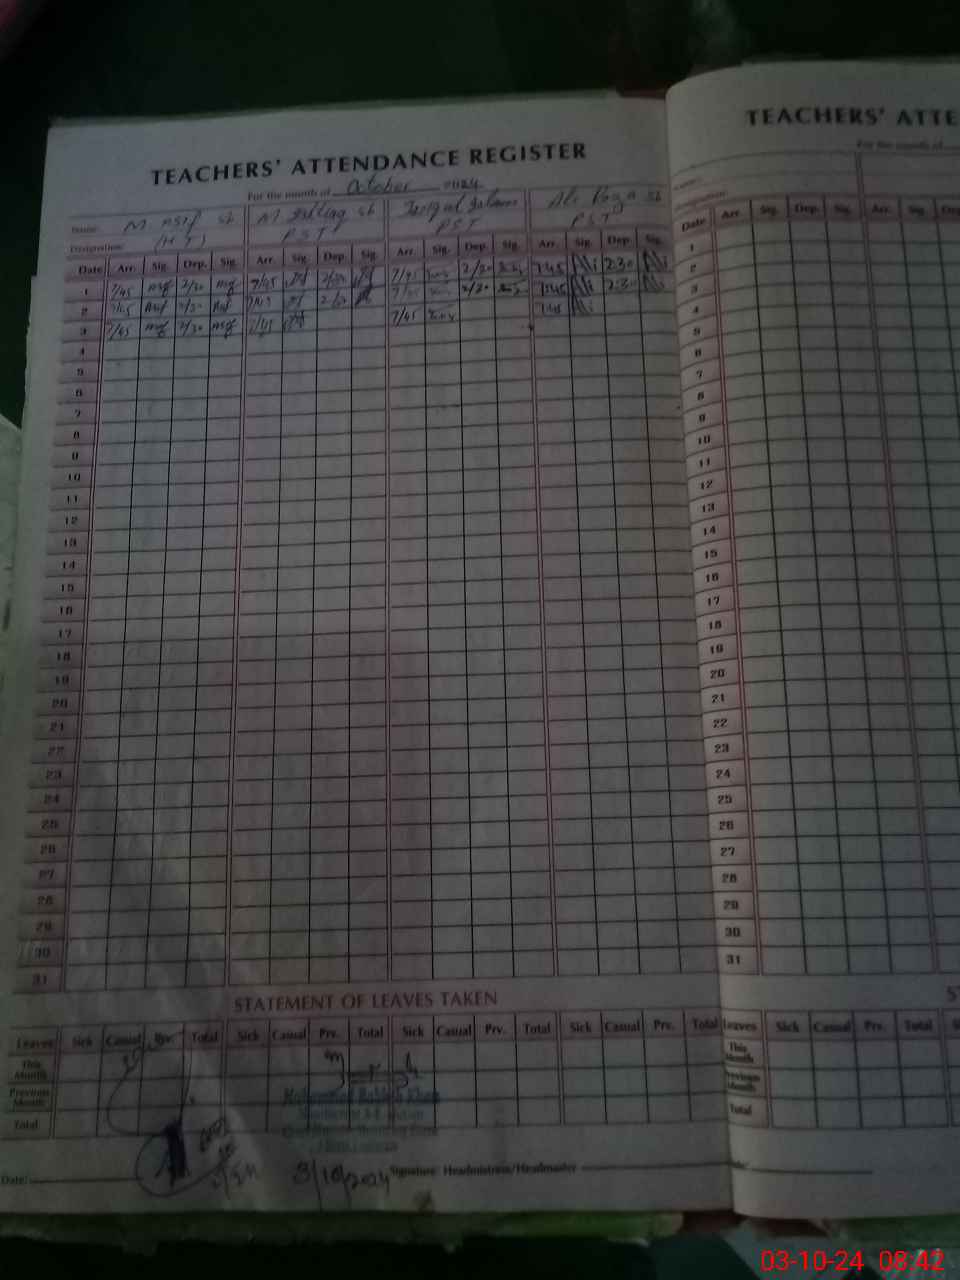 TEACHERS' ATTENDANCE REGISTER
For the month of October 2024
Name: M Asif sb M sb Tariq ul Islam Ali Raza sb
Designation: (H T) P S T P S T P S T
Date Arr. Sig. Dep. Sig. Arr. Sig. Dep. Sig. Arr. Sig. Dep. Sig. Arr. Sig. Dep. Sig.
1 7/45 Asif 2/30 Asif 7/45 2/30 7/45 2/30 7:45 Ali 2:30 Ali
2 7/45 Asif 2/30 Asif 7/45 2/30 7/45 2/30 7:45 Ali 2:30 Ali
3 7/45 Asif 2/30 Asif 7/45 7/45 7:45 Ali
4
5
6
7
8
9
10
11
12
13
14
15
16
17
18
19
20
21
22
23
24
25
26
27
28
29
30
31
STATEMENT OF LEAVES TAKEN
Leaves Sick Casual Prv. Total Sick Casual Prv. Total Sick Casual Prv. Total Sick Casual Prv. Total
This Month
Previous Month
Total
Muhammad Khan
3/10/2024
Date: Signature: Headmistress/Headmaster
TEACHERS' ATTE
For the month of
Date Arr. Sig. Dep. Sig. Arr. Sig.
1
2
3
4
5
6
7
8
9
10
11
12
13
14
15
16
17
18
19
20
21
22
23
24
25
26
27
28
29
30
31
Leaves Sick Casual Prv. Total Sick
This Month
Previous Month
Total
03-10-24 08:42